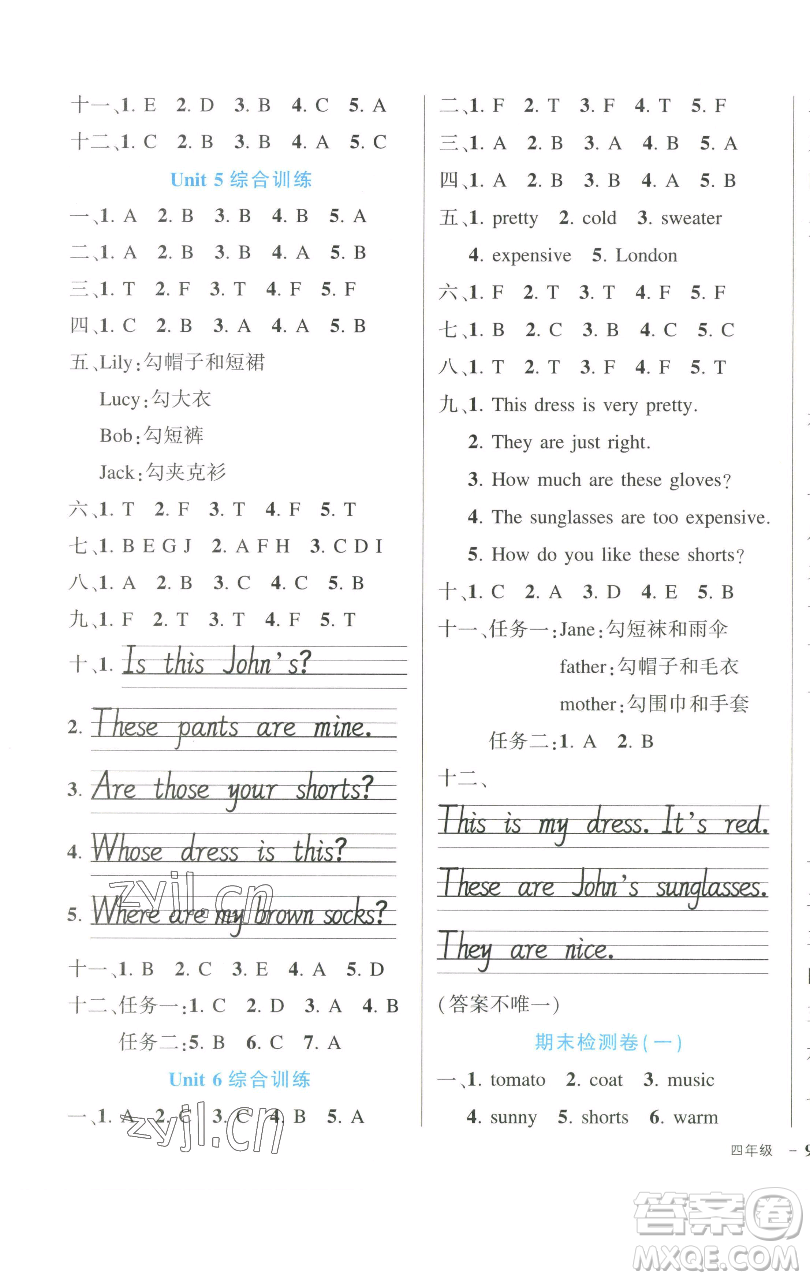 十一、1. E 2. D 3. B 4. C 5. A
十二、1. C 2. B 3. B 4. A 5. C
Unit 5 综合训练
一、1. A 2. B 3. B 4. B 5. A
二、1. A 2. B 3. A 4. B 5. A
三、1. T 2. F 3. T 4. F 5. T
四、1. C 2. B 3. A 4. A 5. B
五、Lily:勾帽子和短裙
Lucy:勾大衣
Bob:勾短裤
Jack:勾夹克衫
六、1. T 2. F 3. T 4. F 5. T
七、1. B E G J 2. A F H 3. C D I
八、1. A 2. B 3. A 4. B 5. A
九、1. F 2. T 3. T 4. F 5. T
十、1. Is this John's?
2. These pants are mine.
3. Are those your shorts?
4. Whose dress is this?
5. Where are my brown socks?
十一、1. B 2. C 3. E 4. A 5. D
十二、任务一:1. C 2. D 3. A 4. B
任务二:5. B 6. C 7. A
Unit 6 综合训练
一、1. A 2. C 3. B 4. B 5. A
二、1. F 2. T 3. F 4. T 5. F
三、1. A 2. B 3. A 4. A 5. B
四、1. B 2. A 3. B 4. A 5. B
五、1. pretty 2. cold 3. sweater
4. expensive 5. London
六、1. F 2. T 3. T 4. F 5. F
七、1. B 2. C 3. C 4. B 5. C
八、1. T 2. T 3. F 4. F 5. T
九、1. This dress is very pretty.
2. They are just right.
3. How much are these gloves?
4. The sunglasses are too expensive.
5. How do you like these shorts?
十、1. C 2. A 3. D 4. E 5. B
十一、任务一:Jane:勾短袜和雨伞
father:勾帽子和毛衣
mother:勾围巾和手套
任务二:1. A 2. B
十二、
This is my dress. It's red.
These are John's sunglasses.
They are nice.
(答案不唯一)
期末检测卷(一)
一、1. tomato 2. coat 3. music
4. sunny 5. shorts 6. warm
四年级 - 9
zyjl.cn
zyjl.cn
答案圈
MXQE.COM